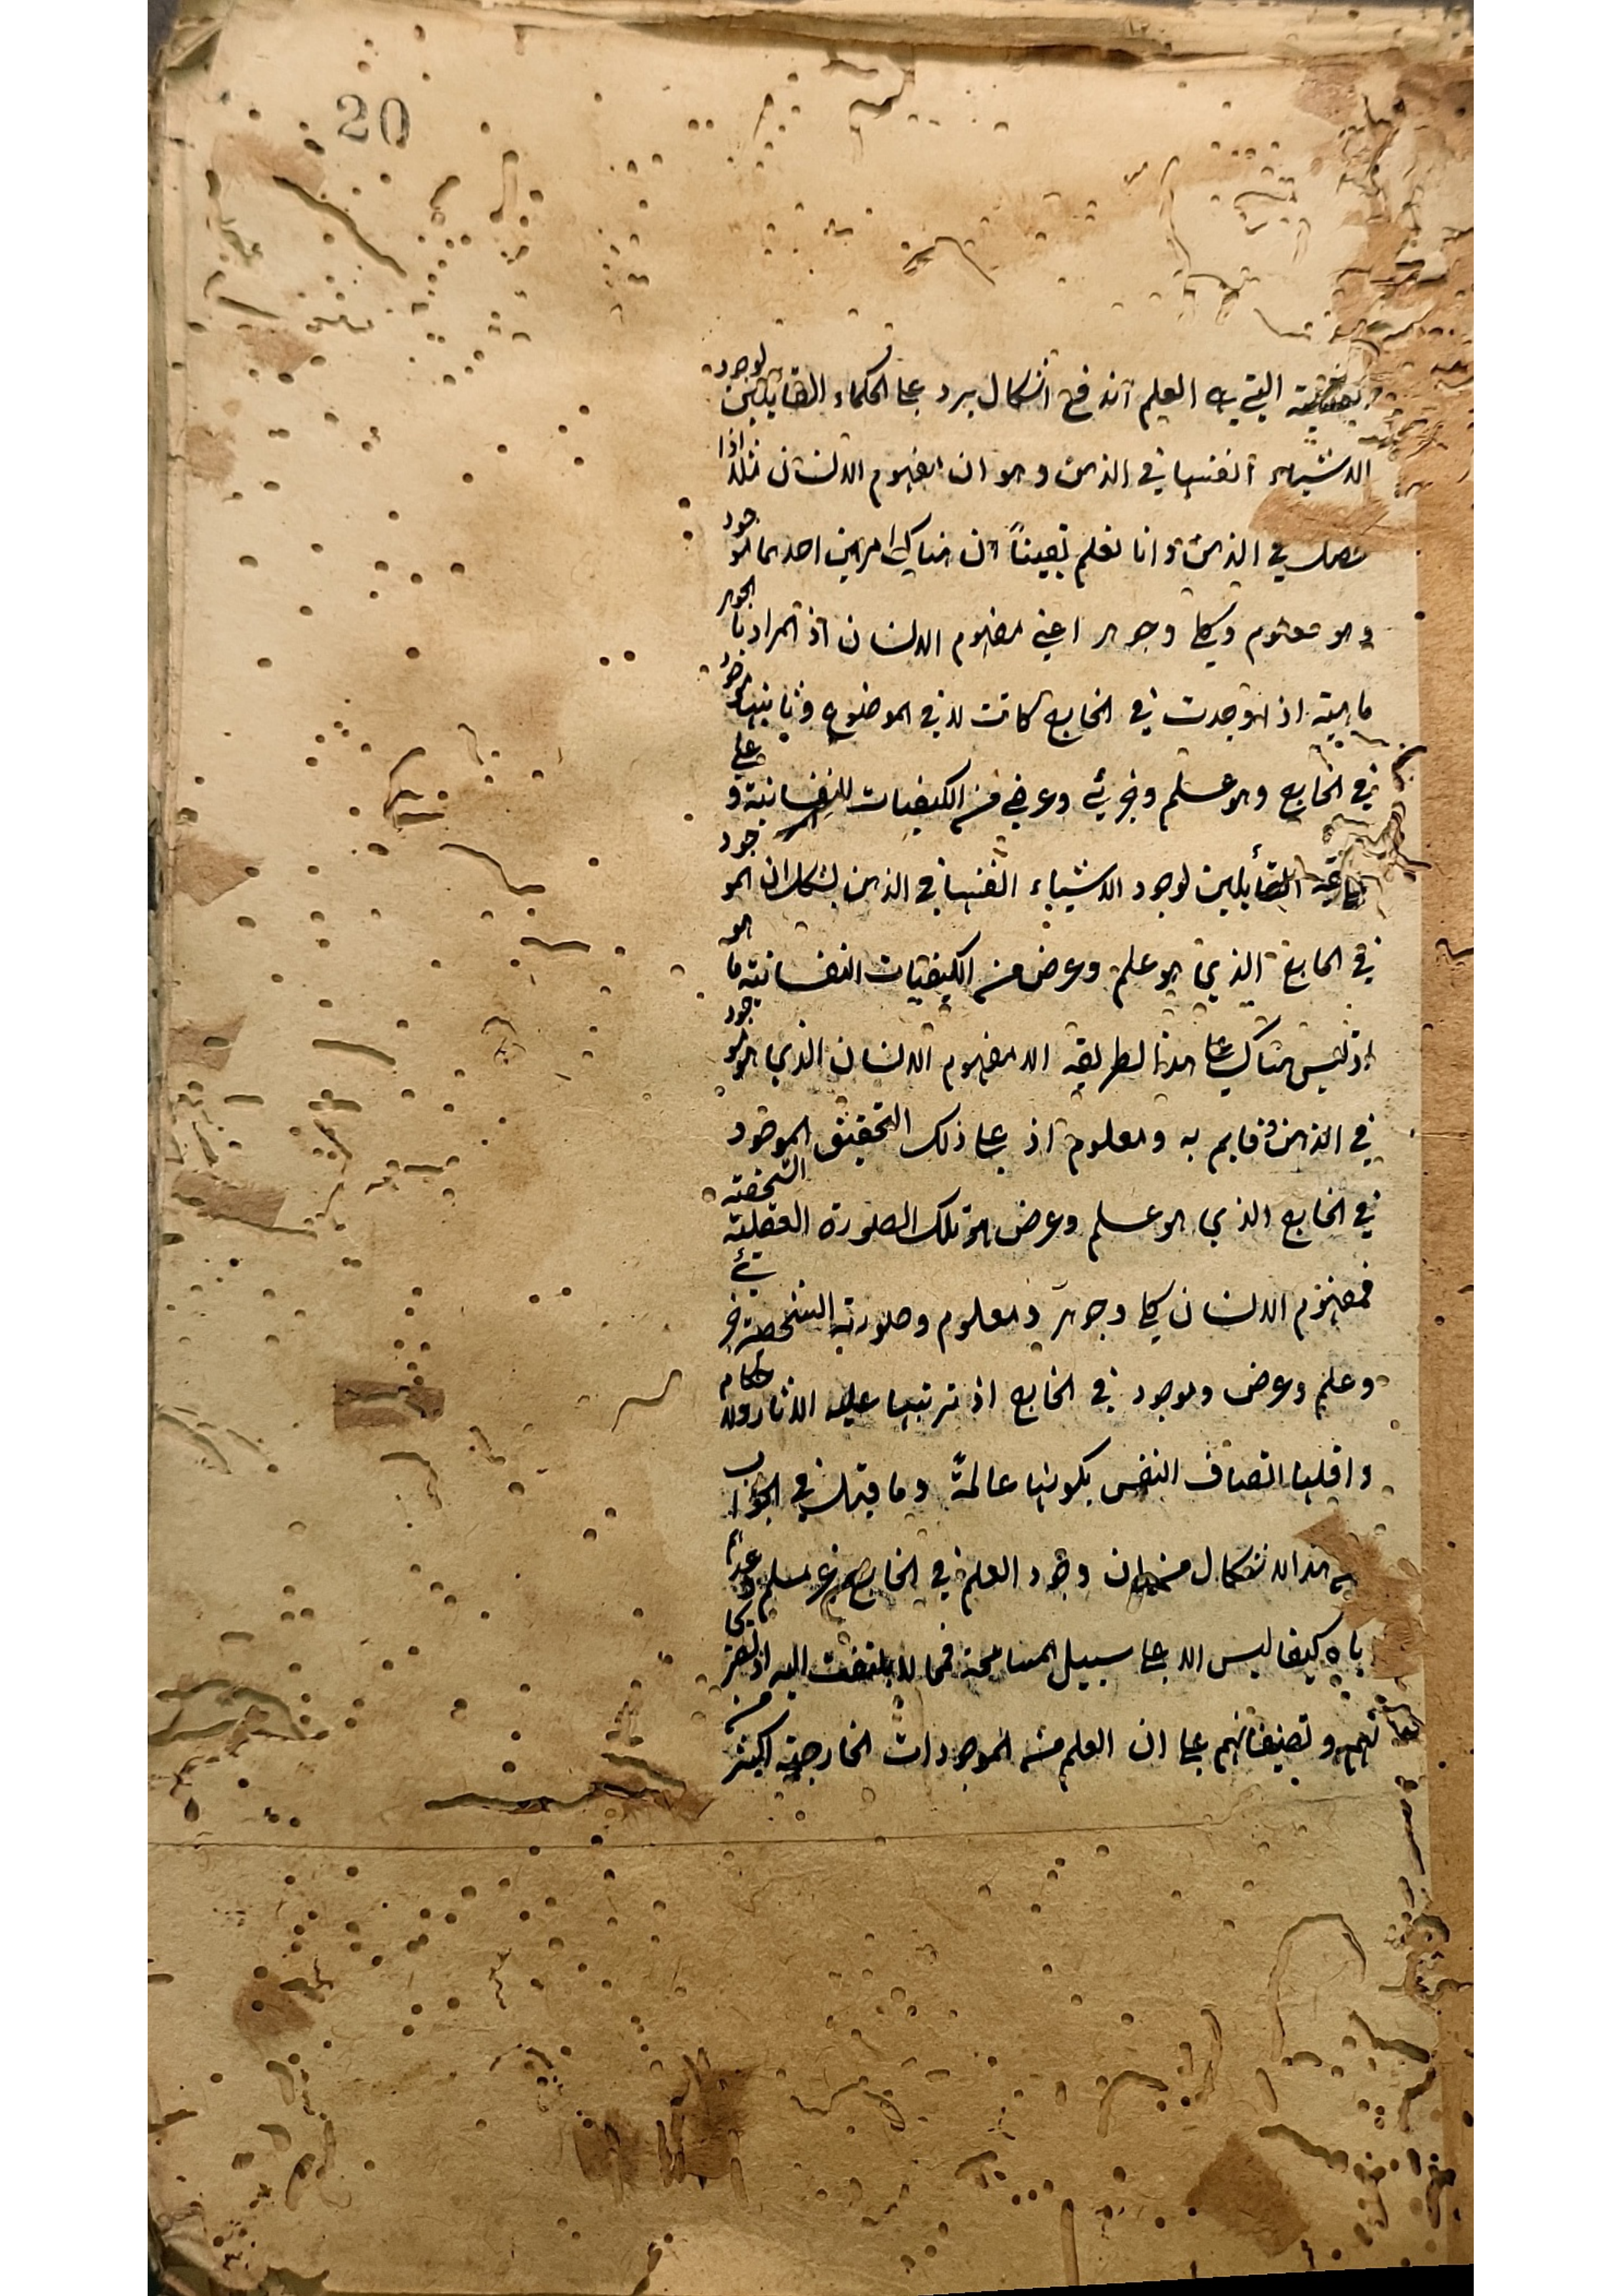 20
العقلية التي هي العلم اندفع اشكال يرد على الحكماء القائلين لوجود
الاشياء انفسها في الذهن وهو ان مفهوم الانسان مثلا اذا
حصل في الذهن وانا نعلم يقينا ان هناك امرين احدهما موجود
وهو معلوم وكلي وجوهر اعني مفهوم الانسان اذ المراد بالجوهر
ماهية اذا وجدت في الخارج كانت لا في الموضوع وثانيهما موجود
في الخارج وهو علم وجزئي وعرض من الكيفيات النفسانية وعلى
القائلين لوجود الاشياء انفسها في الذهن يشكل ان الموجود
في الخارج الذي هو علم وعرض من الكيفيات النفسانية ما هو
اذ ليس هناك على هذا الطريقه الا مفهوم الانسان الذي هو موجود
في الذهن وقايم به ومعلوم اذ على ذلك التحقيق الموجود
في الخارج الذي هو علم وعرض هو تلك الصورة العقلية الشخصية
فمفهوم الانسان كلي وجوهر ومعلوم وصورته الشخصية جزئي
وعلم وعرض وموجود في الخارج اذ ترتبها عليه الاثار والاحكام
واقلها اتصاف النفس بكونها عالمة وما قيل في الجواب
هذا الاشكال من ان وجود العلم في الخارج غير مسلم وعدهم
اياه كيفا ليس الا على سبيل المسامحة فمما لا يلتفت اليه اذ
وتصنيفاتهم على ان العلم من الموجودات الخارجية اكثر من